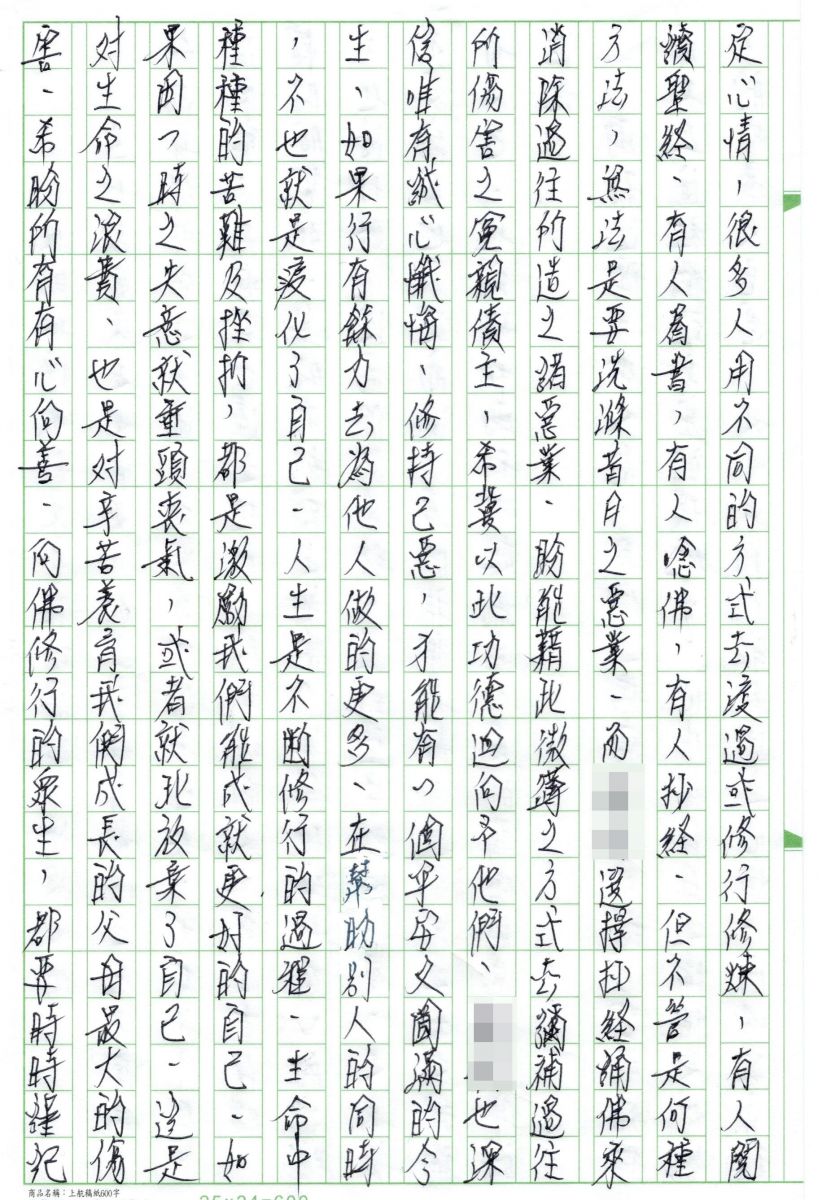 定心情，很多人用不同的方式去渡過或修行修煉，有人閱
讀聖經、有人為書，有人唸佛，有人抄經、但不管是何種
方法，無法是要洗滌昔日之惡業、而選擇抄經誦佛來
消除過往所造之諸惡業、盼能藉此微薄之方式去彌補過往
所傷害之冤親債主，希冀以此功德迴向予他們、也深
信唯有誠心懺悔、修持己惡，才能有一個平安又圓滿的今
生、如果行有餘力去為他人做的更多、在幫助別人的同時
，不也就是渡化了自己、人生是不斷修行的過程、生命中
種種的苦難及挫折，都是激勵我們能成就更好的自己、如
果因一時之失意就垂頭喪氣，或者就此放棄了自己、這是
對生命之浪費、也是對辛苦養育我們成長的父母最大的傷
害、希盼所有有心向善、向佛修行的眾生，都要時時謹記
商品名稱：上航稿紙600字
25×24=600